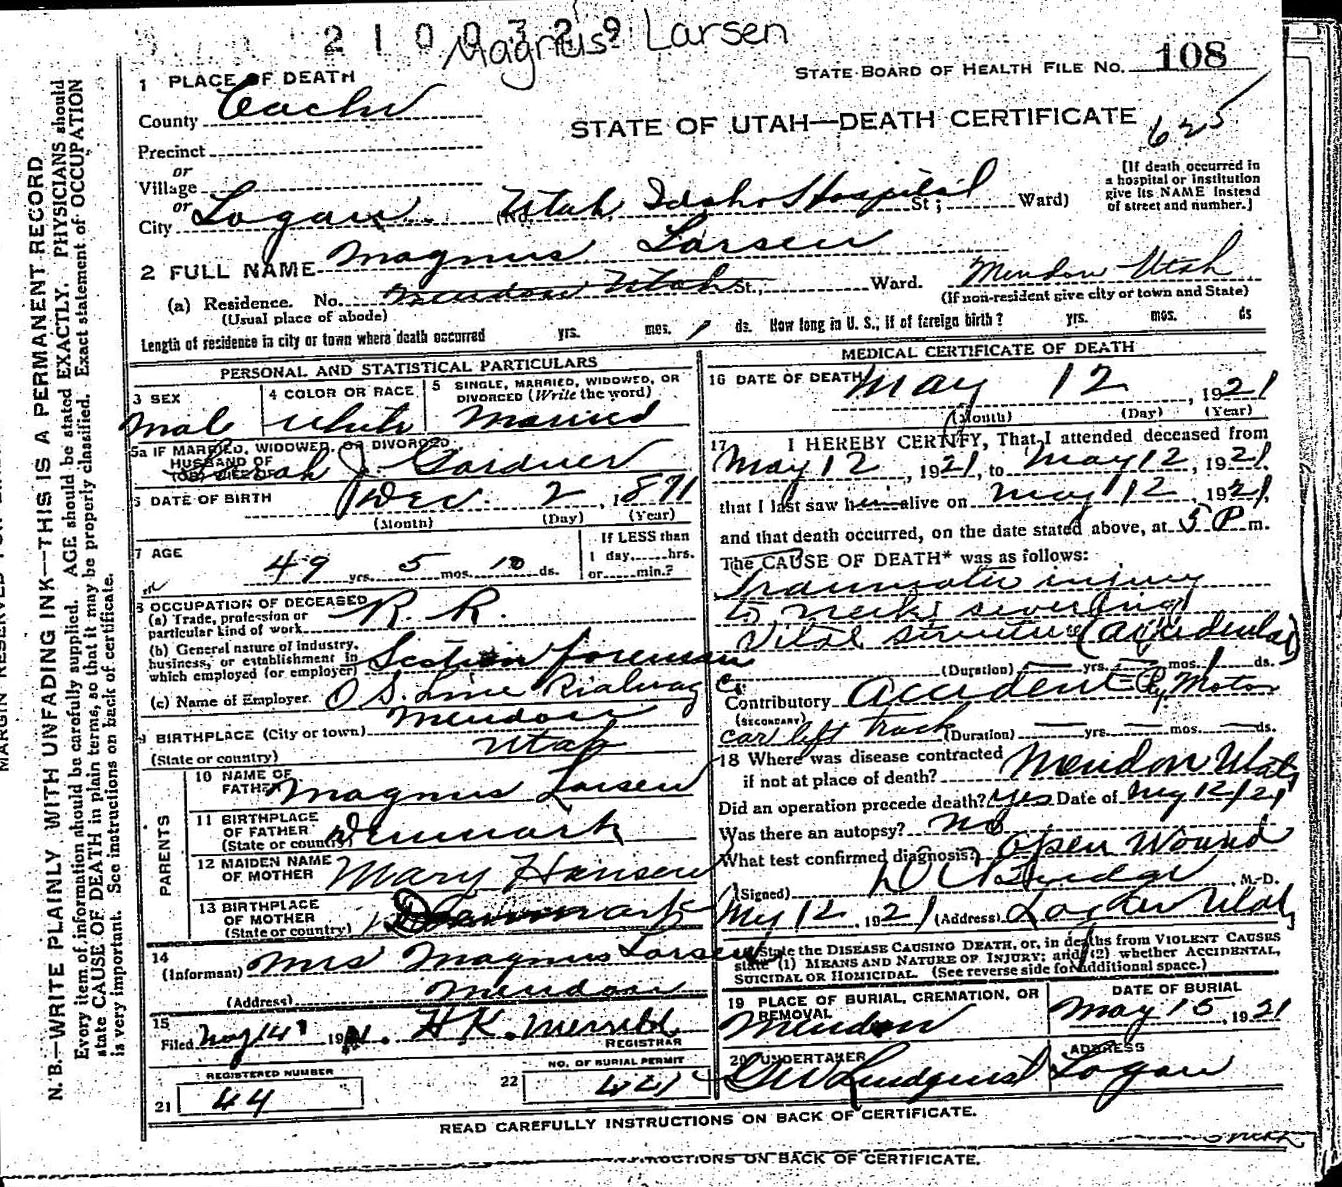 2100329
Magnus Larsen
STATE BOARD OF HEALTH FILE NO. 108
1 PLACE OF DEATH
County Cache
STATE OF UTAH—DEATH CERTIFICATE
625
Precinct
or
Village
or
City Logan (No. Utah Idaho Hospital St; Ward)
[If death occurred in
a hospital or institution
give its NAME instead
of street and number.]
2 FULL NAME Magnus Larsen
(a) Residence. No. Mendon Utah St., Ward. Mendon Utah
(Usual place of abode) (If non-resident give city or town and State)
Length of residence in city or town where death occurred yrs. mos. 1 ds. How long in U. S.; if of foreign birth? yrs. mos. ds
PERSONAL AND STATISTICAL PARTICULARS
3 SEX
Male
4 COLOR OR RACE
White
5 SINGLE, MARRIED, WIDOWED, OR
DIVORCED (Write the word)
Married
5a IF MARRIED, WIDOWED, OR DIVORCED
HUSBAND OF
(OR) WIFE OF
J. Gardner
6 DATE OF BIRTH Dec. 2, 1871
(Month) (Day) (Year)
7 AGE
49 yrs. 5 mos. 10 ds.
If LESS than
1 day,......hrs.
or......min.?
8 OCCUPATION OF DECEASED
(a) Trade, profession or
particular kind of work R. R.
(b) General nature of industry,
business, or establishment in
which employed (or employer) Section foreman
(c) Name of Employer. O S. Line Rialway
9 BIRTHPLACE (City or town) Mendon
(State or country) Utah
PARENTS
10 NAME OF
FATHER Magnus Larsen
11 BIRTHPLACE
OF FATHER
(State or country) Denmark
12 MAIDEN NAME
OF MOTHER Mary Hansen
13 BIRTHPLACE
OF MOTHER
(State or country) Denmark
14
(Informant) Mrs Magnus Larsen
(Address) Mendon
15
Filed May 14 1921. H K. Merrill
REGISTRAR
REGISTERED NUMBER
21 44
NO. OF BURIAL PERMIT
22 421
MEDICAL CERTIFICATE OF DEATH
16 DATE OF DEATH May 12, 1921
(Month) (Day) (Year)
17 I HEREBY CERTIFY, That I attended deceased from
May 12, 1921, to May 12, 1921
that I last saw him alive on May 12, 1921,
and that death occurred, on the date stated above, at 5 P m.
The CAUSE OF DEATH* was as follows:
Traumatic injury
to neck severing
Vital structure (accidental)
(Duration) yrs. mos. 1 ds.
Contributory Accident By Motor
(SECONDARY)
car left track (Duration) yrs. mos. ds.
18 Where was disease contracted
if not at place of death? Mendon Utah
Did an operation precede death? yes Date of My 12/21
Was there an autopsy? no
What test confirmed diagnosis? Open Wound
(Signed) D C Budge, M.D.
My 12, 1921 (Address) Logan Utah
*State the DISEASE CAUSING DEATH, or, in deaths from VIOLENT CAUSES
state (1) MEANS AND NATURE OF INJURY; and (2) whether ACCIDENTAL,
SUICIDAL OR HOMICIDAL. (See reverse side for additional space.)
19 PLACE OF BURIAL, CREMATION, OR
REMOVAL
Mendon
DATE OF BURIAL
May 15, 1921
20 UNDERTAKER
G W Lindquist
ADDRESS
Logan
READ CAREFULLY INSTRUCTIONS ON BACK OF CERTIFICATE.
INSTRUCTIONS ON BACK OF CERTIFICATE.
N. B.—WRITE PLAINLY WITH UNFADING INK—THIS IS A PERMANENT RECORD
Every item of information should be carefully supplied. AGE should be stated EXACTLY. PHYSICIANS should
state CAUSE OF DEATH in plain terms, so that it may be properly classified. Exact statement of OCCUPATION
is very important. See instructions on back of certificate.
MARGIN RESERVED